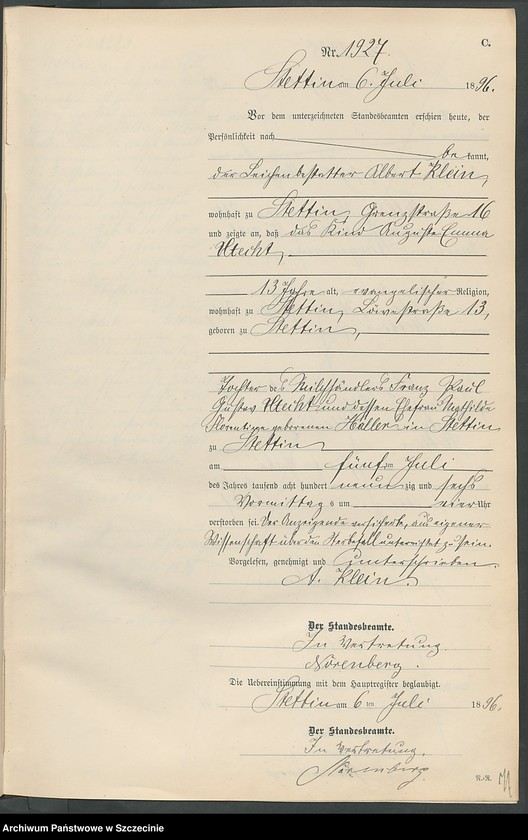 C.
Nr. 1927.
Stettin am 6. Juli 1896.
Vor dem unterzeichneten Standesbeamten erschien heute, der
Persönlichkeit nach
be kannt,
der Leichenbestatter Albert Klein,
wohnhaft zu Stettin, Grenzstraße 16
und zeigte an, daß das Kind Auguste Emma
Utecht,
13 Jahre alt, evangelischer Religion,
wohnhaft zu Stettin, Löwestraße 13,
geboren zu Stettin,
Tochter des Milchhändlers Franz Paul
Gustav Utecht und dessen Ehefrau Mathilde
geborenen Haller in Stettin
zu Stettin
am fünften Juli
des Jahres tausend acht hundert neun zig und sechs
Vormittags um vier Uhr
verstorben sei. Der Anzeigende versicherte, aus eigener
Wissenschaft über den Sterbefall unterrichtet zu sein.
Vorgelesen, genehmigt und unterschrieben.
A. Klein.
Der Standesbeamte.
In Vertretung.
Nörenberg.
Die Uebereinstimmung mit dem Hauptregister beglaubigt.
Stettin am 6 ten Juli 1896.
Der Standesbeamte.
In Vertretung.
Nörenberg
N.-R.
Archiwum Państwowe w Szczecinie